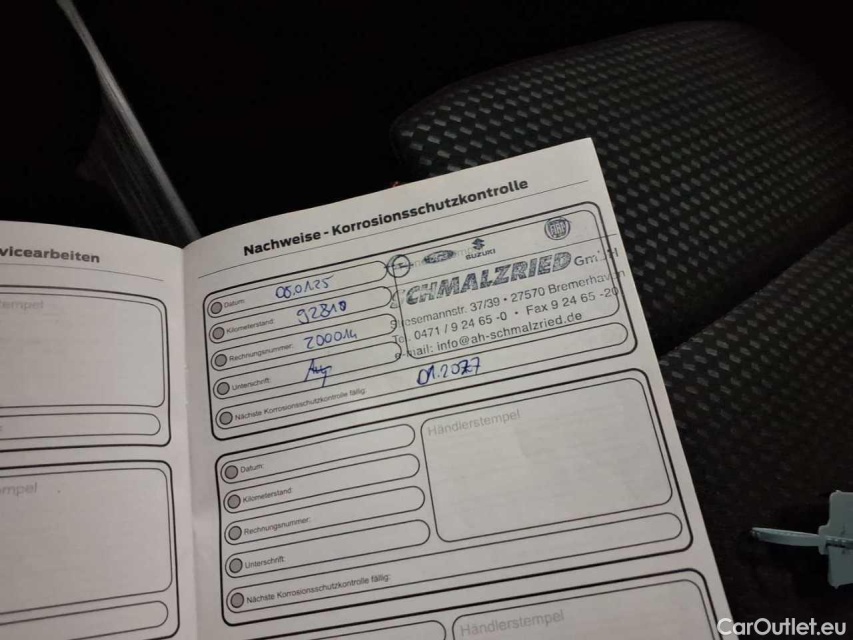 vicearbeiten
tempel
mpel
Nachweise - Korrosionsschutzkontrolle
Datum: 08.01.25
Kilometerstand: 92810
Rechnungsnummer: 200014
Unterschrift:
Nächste Korrosionsschutzkontrolle fällig: 01.2027
SUZUKI
FIAT
SCHMALZRIED GmbH
Stresemannstr. 37/39 • 27570 Bremerhaven
Tel. 0471 / 9 24 65 -0 • Fax 9 24 65 -20
e-mail: info@ah-schmalzried.de
Datum:
Kilometerstand:
Rechnungsnummer:
Unterschrift:
Nächste Korrosionsschutzkontrolle fällig:
Händlerstempel
Händlerstempel
CarOutlet.eu